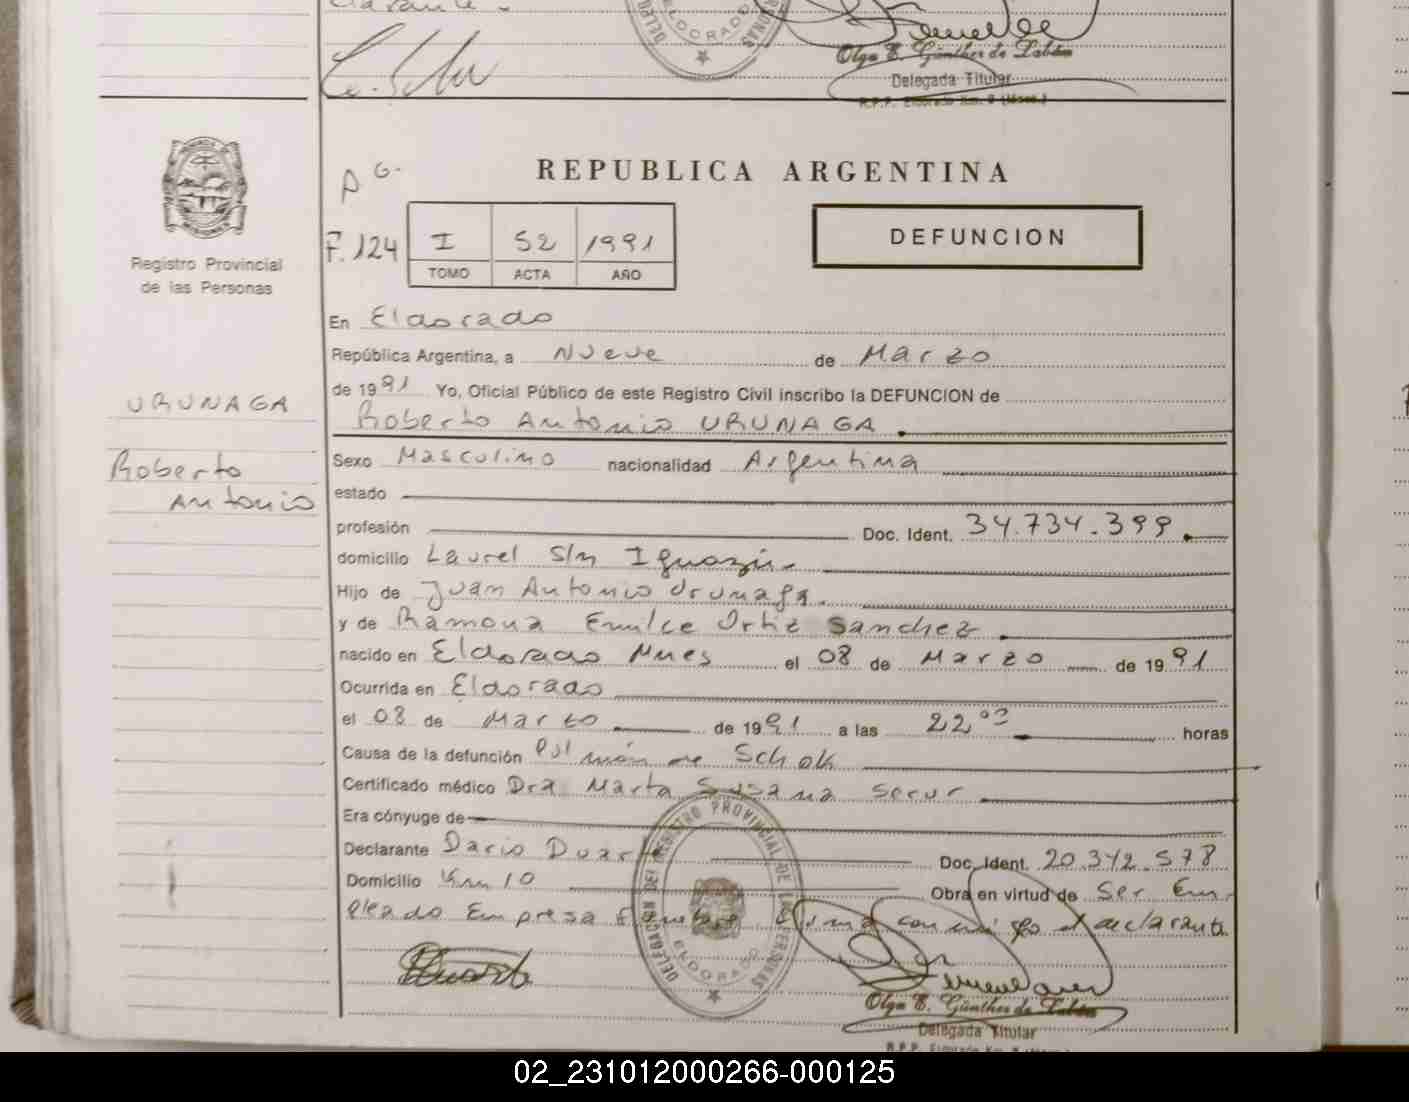 REPUBLICA ARGENTINA
Olga E. Günther de Labán
Delegada Titular
R.P.P. Eldorado Km. 9 (Mnes.)
Registro Provincial
de las Personas
F. 124
I 52 1991
TOMO ACTA AÑO
DEFUNCION
En Eldorado
República Argentina, a Nueve de Marzo
de 1991 Yo, Oficial Público de este Registro Civil inscribo la DEFUNCION de
Roberto Antonio URUNAGA
URUNAGA
Roberto
Antonio
Sexo Masculino nacionalidad Argentina
estado
profesión Doc. Ident. 34.734.399
domicilio Laurel S/n Iguazú
Hijo de Juan Antonio Urunaga
y de Ramona Emilce Ortiz Sanchez
nacido en Eldorado Mnes el 08 de Marzo de 1991
Ocurrida en Eldorado
el 08 de Marzo de 1991 a las 22 horas
Causa de la defunción Pulmón de Schok
Certificado médico Dra Marta Susana Secur
Era cónyuge de
Declarante Dario Duarte Doc. Ident. 20.342.578
Domicilio Km 10 Obra en virtud de Ser Em-
pleado Empresa Firma conmigo el declarante
DELEGACION DEL REGISTRO PROVINCIAL DE LAS PERSONAS
ELDORADO
Olga E. Günther de Labán
Delegada Titular
02_231012000266-000125